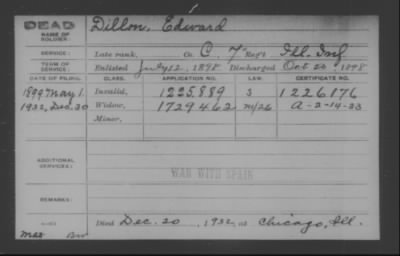 DEAD
NAME OF SOLDIER:
Dillon, Edward
SERVICE:
Late rank, Co. C, 7" Reg't Ill. Inf
TERM OF SERVICE:
Enlisted July 12, 1898 Discharged Oct 20, 1898
DATE OF FILING. CLASS. APPLICATION NO. LAW. CERTIFICATE NO.
1899 May 1. Invalid, 1225,889 S 1226176
1932, Dec. 30 Widow, 1729462 M/26 A-2-14-33
Minor,
ADDITIONAL SERVICES:
WAR WITH SPAIN
REMARKS:
Died Dec. 20, 1932, at Chicago, Ill.